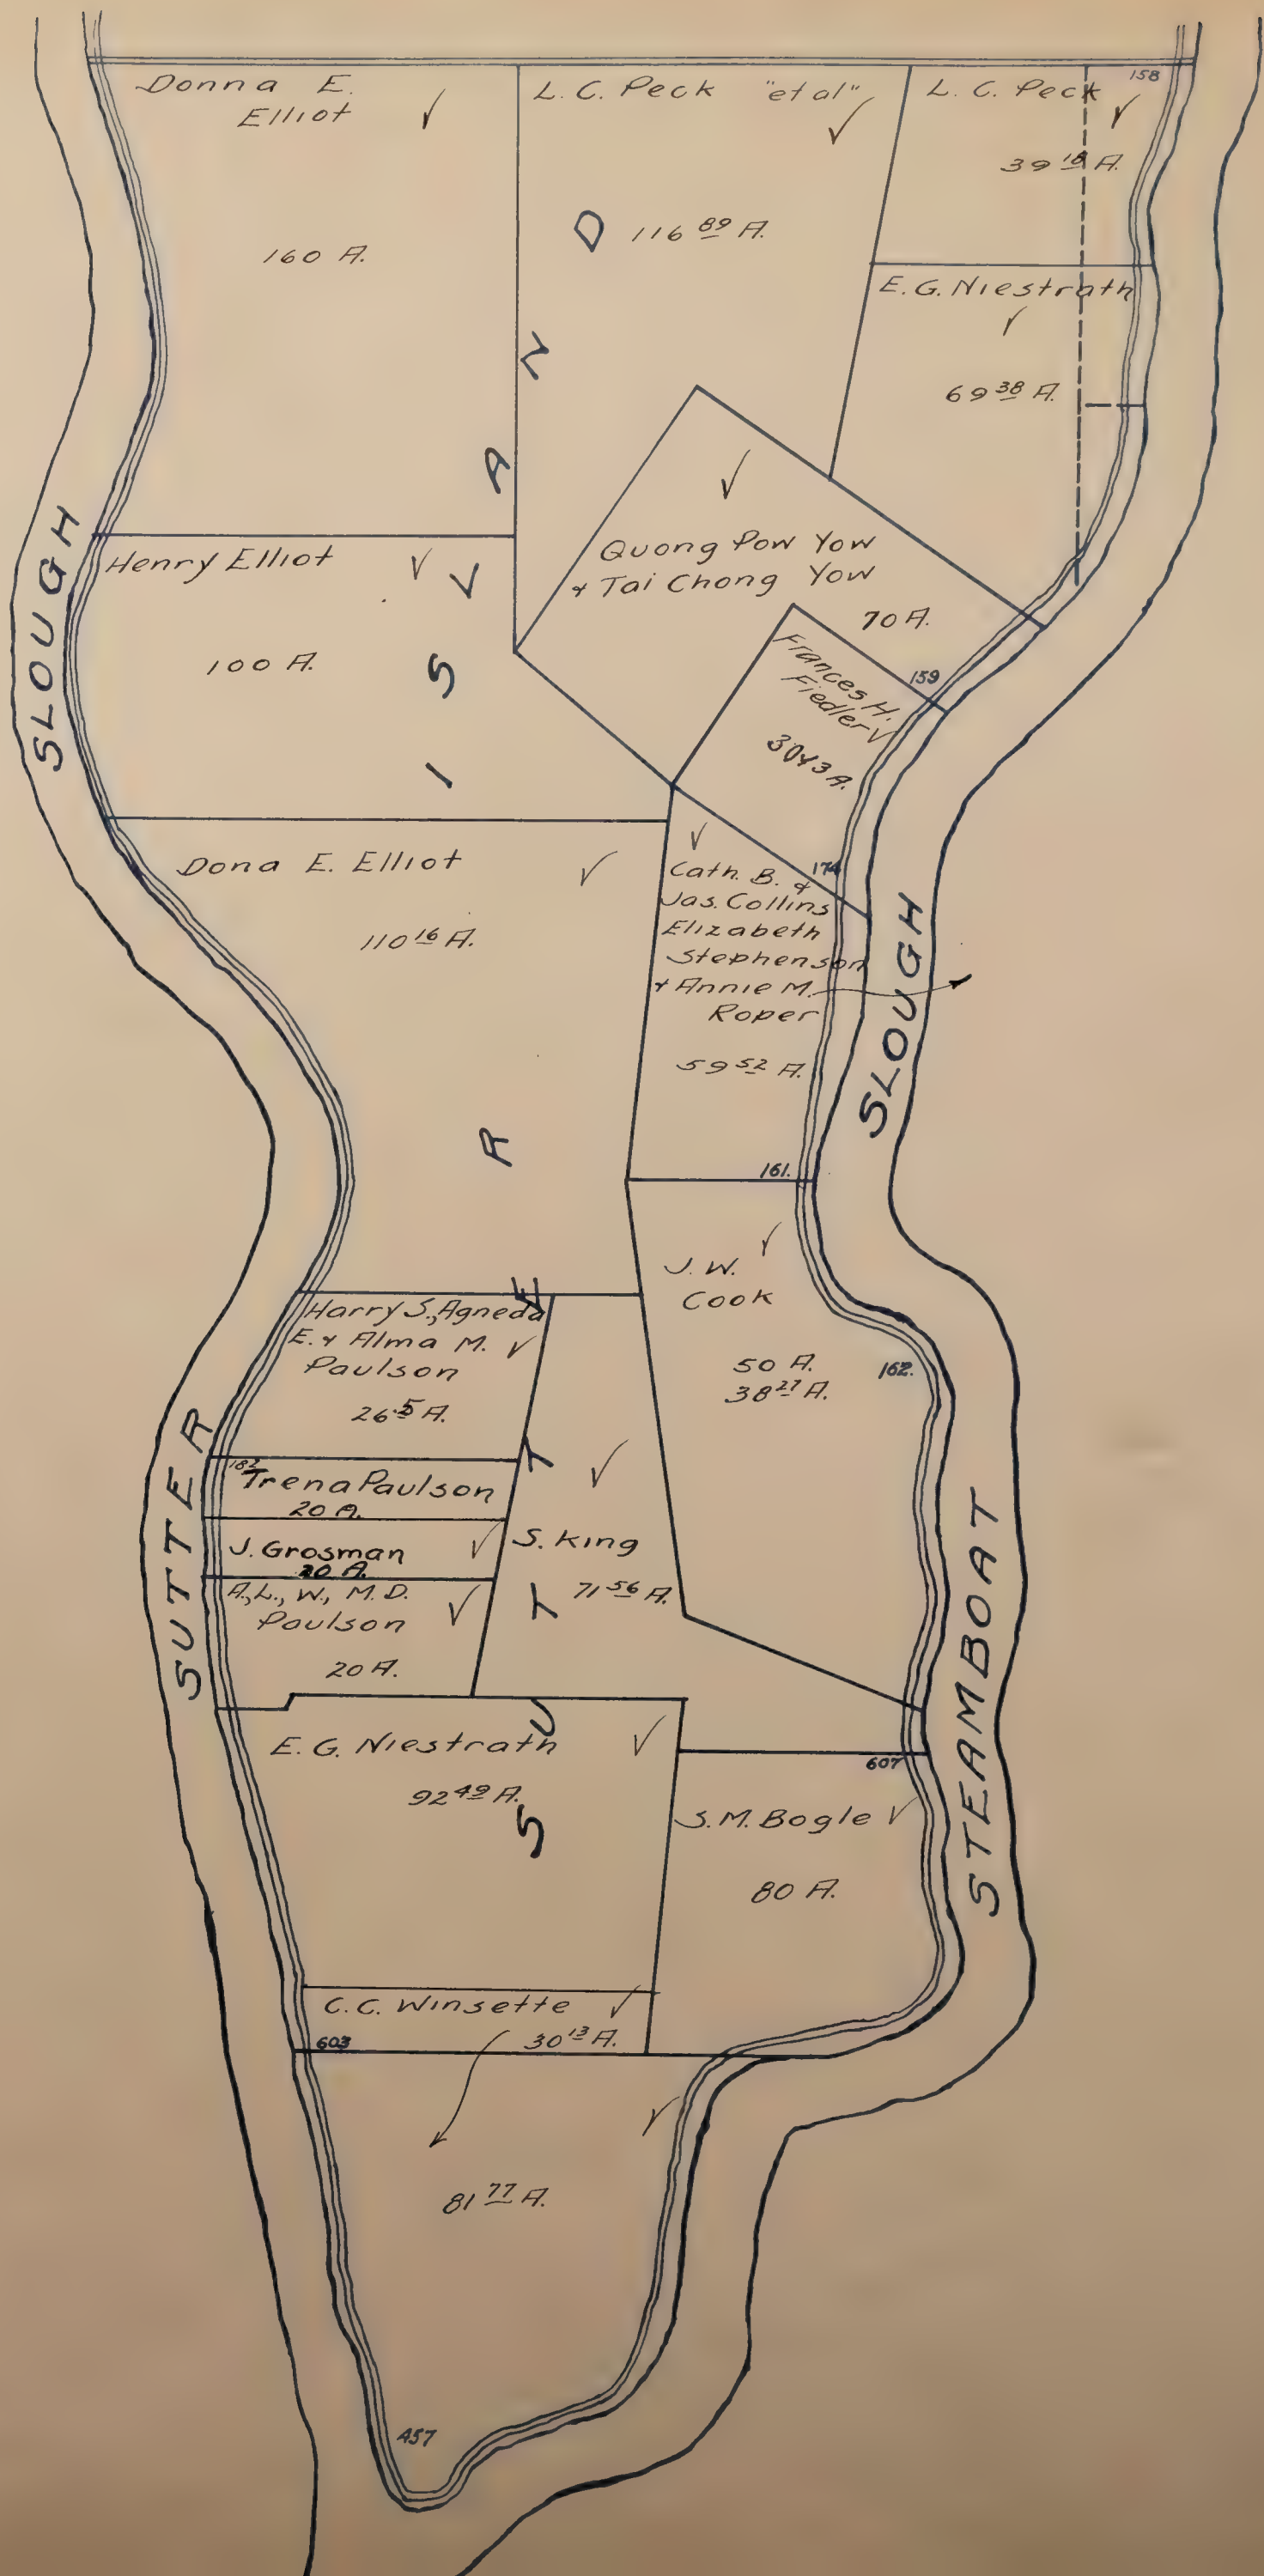 Donna E.
Elliot
160 A.
L. C. Peck "et al"
116 89 A.
L. C. Peck
158
39 18 A.
E. G. Niestrath
69 38 A.
Quong Pow Yow
& Tai Chong Yow
70 A.
Henry Elliot
100 A.
Frances H.
Fiedler
159
Dona E. Elliot
110 16 A.
174
Cath. B. &
Jas. Collins
Elizabeth
Stephenson
& Annie M.
Roper
59 52 A.
161.
J. W.
Cook
50 A.
38 27 A.
162.
Harry S., Agneda
E. & Alma M.
Paulson
26.5 A.
182
Trena Paulson
20 A.
J. Grosman
20 A.
A., L., W., M. D.
Paulson
20 A.
S. King
71 56 A.
E. G. Niestrath
92 49 A.
607
S. M. Bogle
80 A.
C. C. Winsette
30 13 A.
603
81 77 A.
457
SUTTER SLOUGH
STEAMBOAT SLOUGH
SUTTER ISLAND